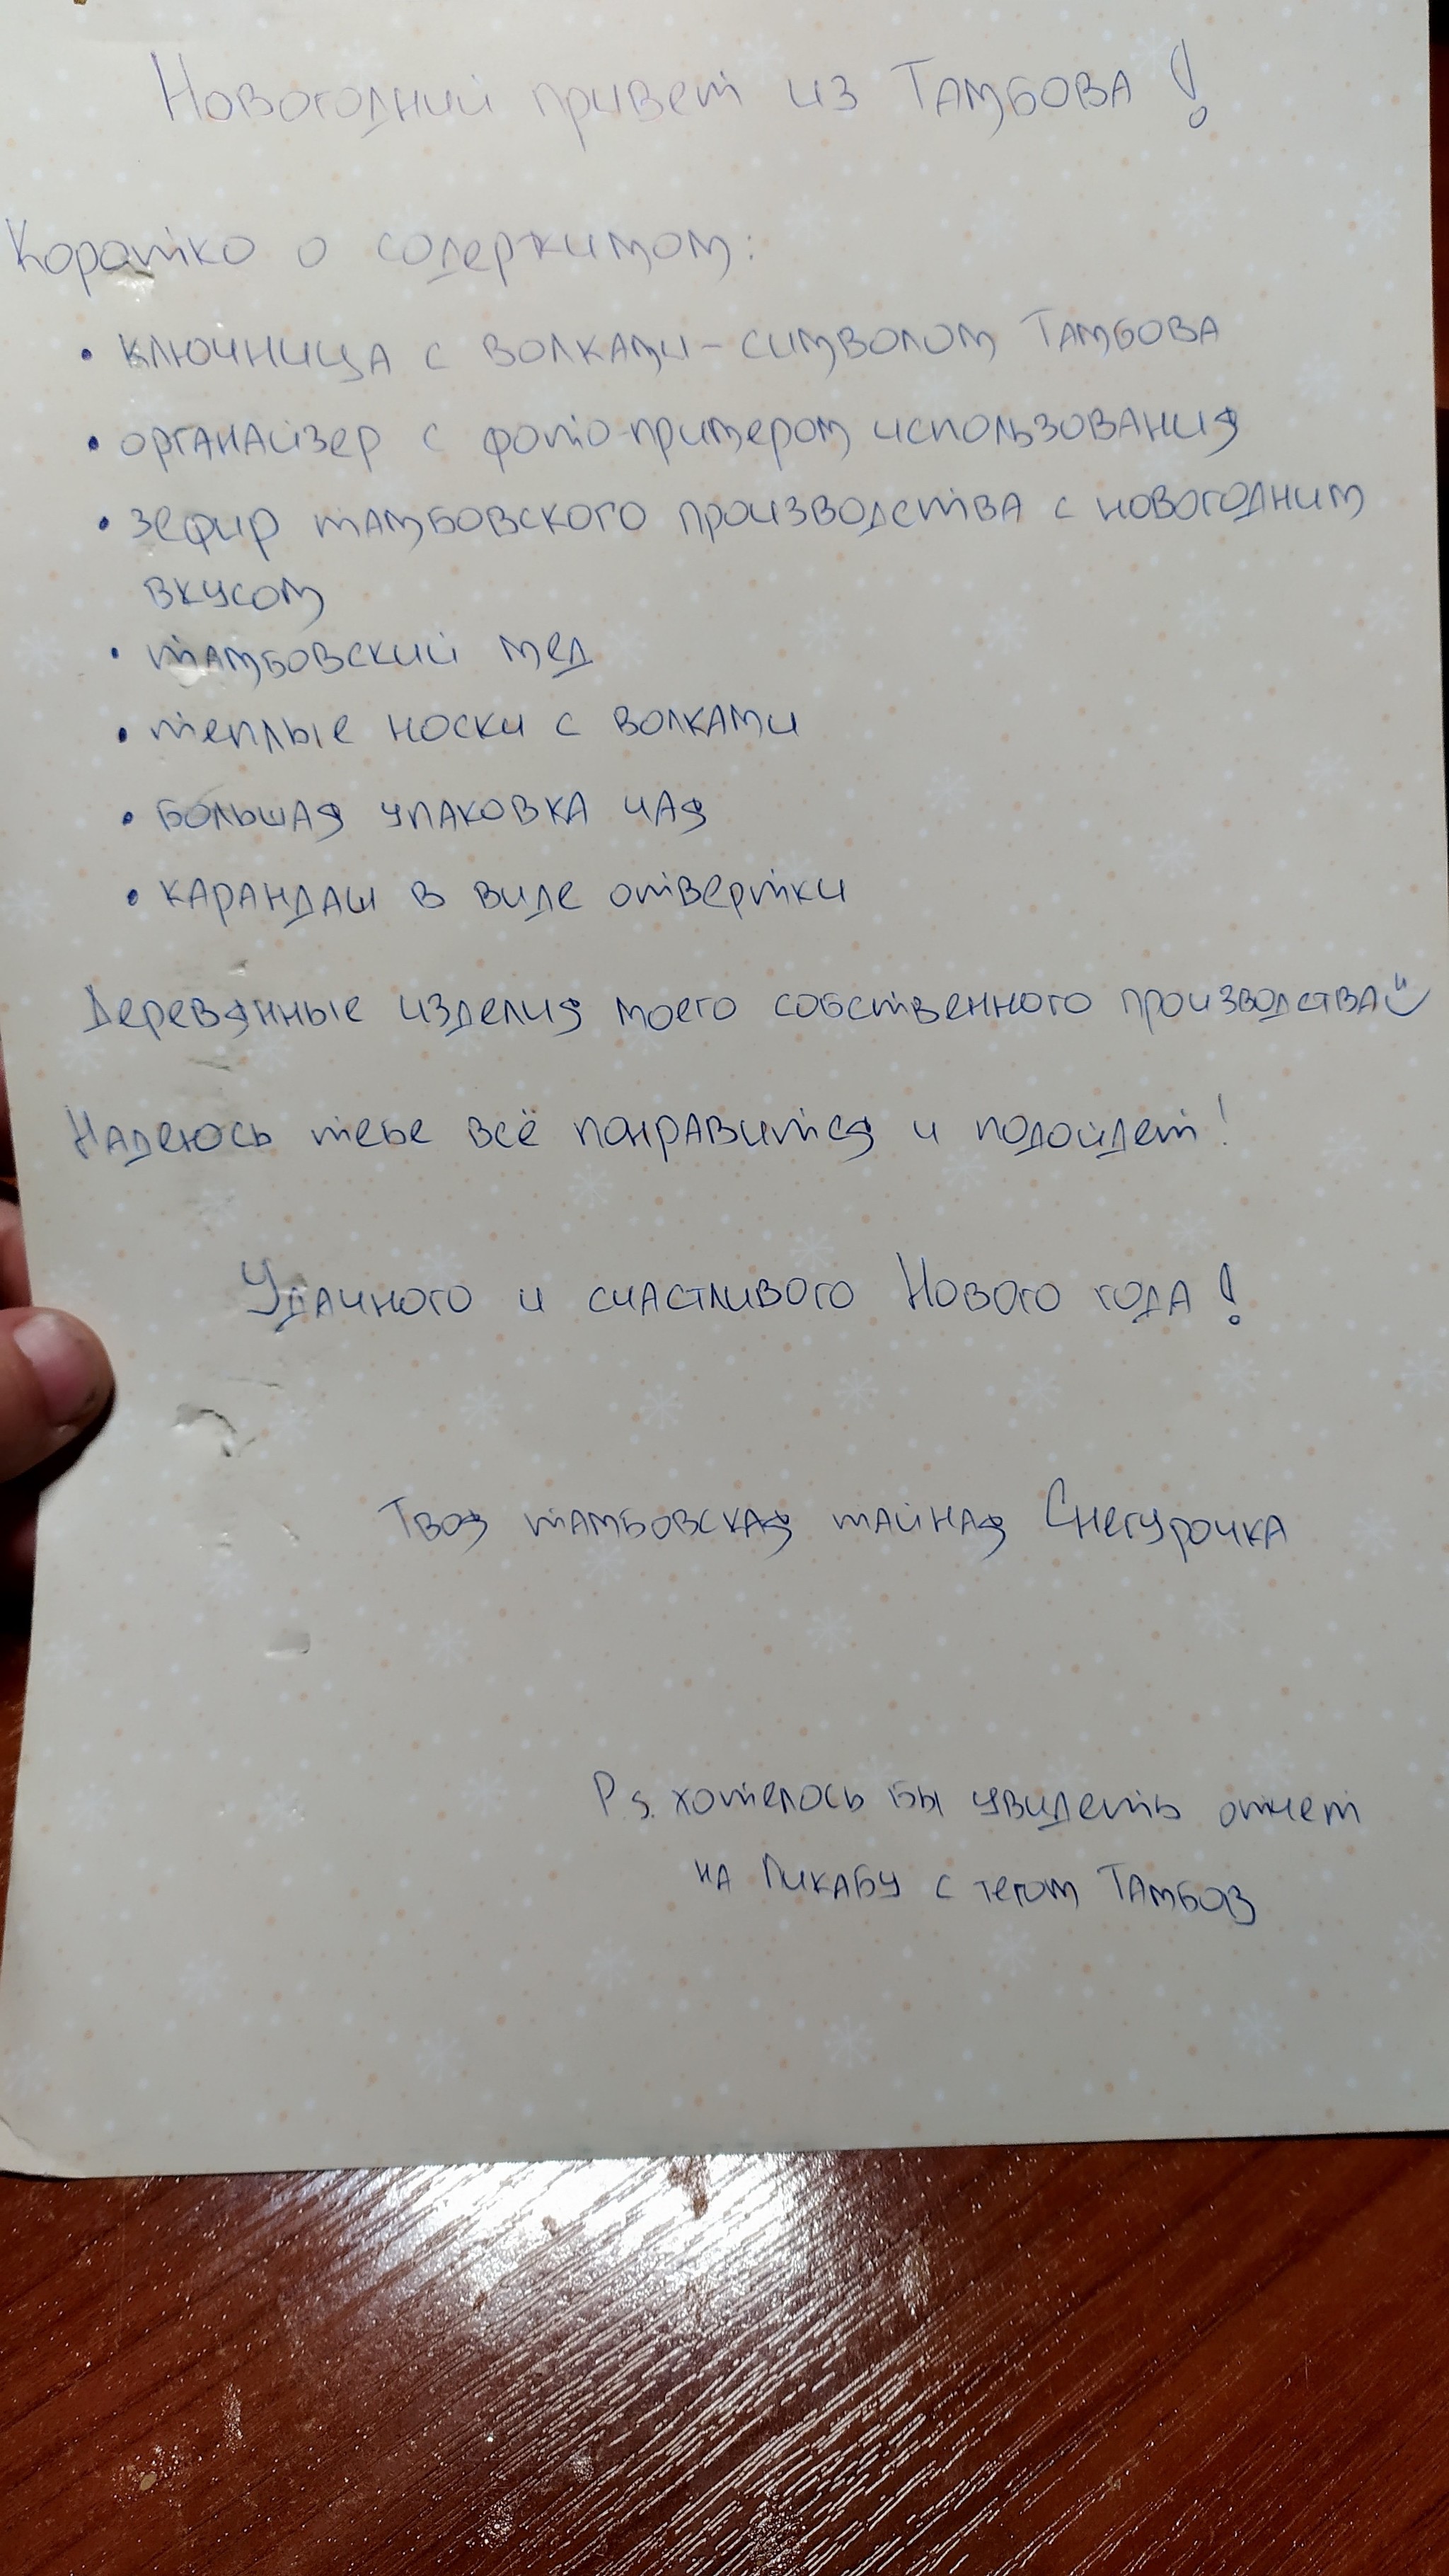 Новогодний привет из Тамбова!
Коротко о содержимом:
• ключница с волками - символом Тамбова
• органайзер с фото-примером использования
• зефир тамбовского производства с новогодним
вкусом
• тамбовский мед
• теплые носки с волками
• большая упаковка чая
• карандаш в виде отвертки
Деревянные изделия моего собственного производства
Надеюсь тебе всё понравится и подойдет!
Удачного и счастливого Нового года!
Твоя тамбовская тайная Снегурочка
P.s. хотелось бы увидеть отчет
на Пикабу с тегом Тамбов